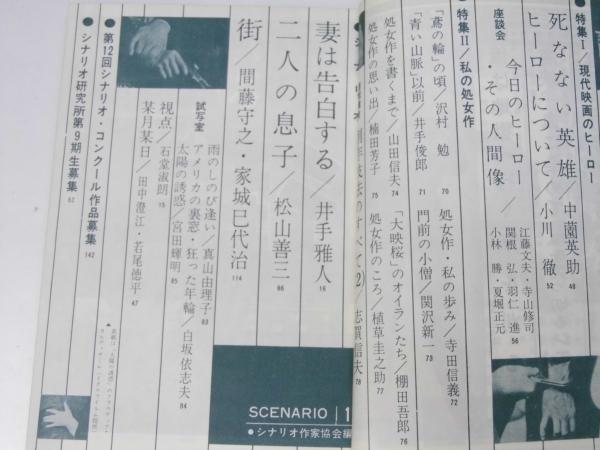 特集Ⅰ/現代映画のヒーロー
死なない英雄/中薗英助 48
ヒーローについて/小川 徹 52
座談会
今日のヒーロー
・その人間像
江藤文夫・寺山修司
関根 弘・羽仁 進
小林 勝・夏堀正元 56
特集Ⅱ/私の処女作
「鳶の輪」の頃/沢村 勉 70
処女作・私の歩み/寺田信義 72
「青い山脈」以前/井手俊郎 71
門前の小僧/関沢新一 73
処女作を書くまで/山田信夫 74
「大映桜」のオイランたち/棚田吾郎 76
処女作の思い出/楠田芳子 75
処女作のころ/植草圭之助 77
のすべて(2)/志賀信夫 78
妻は告白する/井手雅人 16
二人の息子/松山善三 86
街/間藤守之・家城巳代治 114
試写室
雨のしのび逢い/真山由理子 83
アメリカの裏窓・狂った年輪/白坂依志夫 84
太陽の誘惑/宮田輝明 85
視点/石堂淑朗 15
某月某日/田中澄江・若尾徳平 47
●第12回シナリオ・コンクール作品募集 142
●シナリオ研究所第9期生募集 62
SCENARIO 1
●シナリオ作家協会編